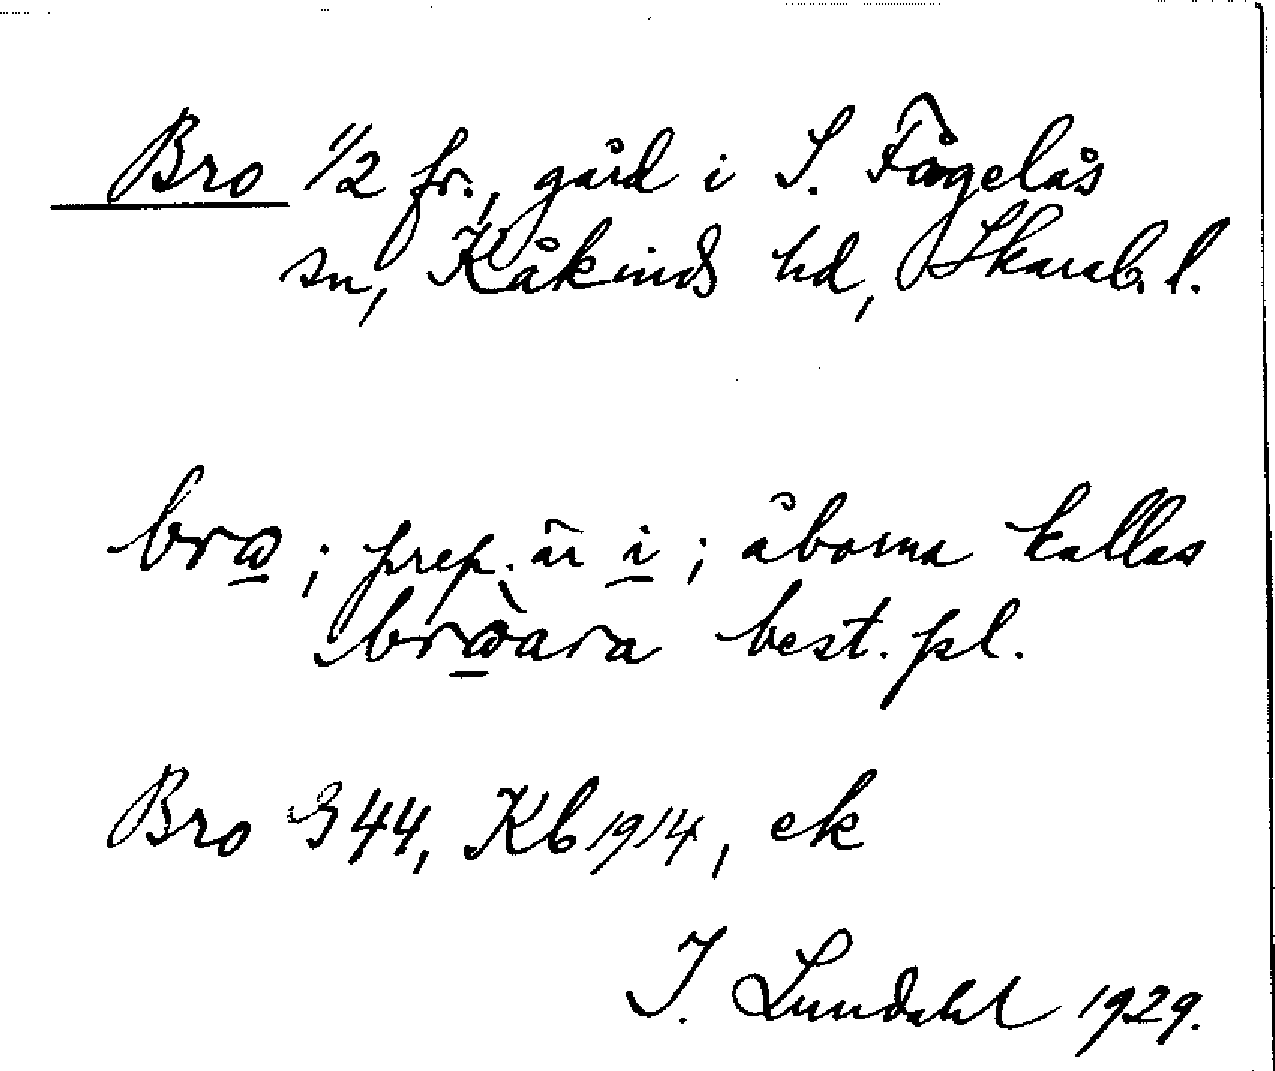 Bro 1/2 fr., gård i S. Fågelås
sn, Kåkinds hd, Skarab. l.
brω; prep. är i; åborna kallas
brὼara best. pl.
Bro G44, Kb 1914, ek
I. Lundahl 1929.